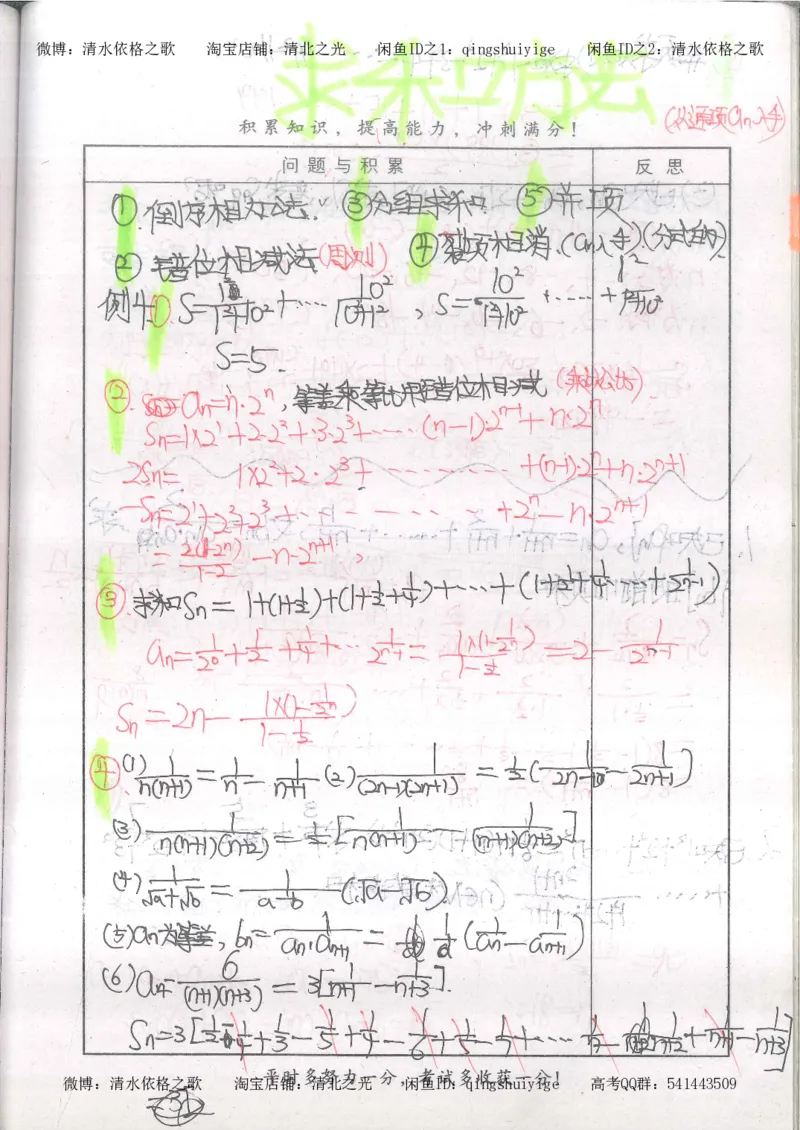 微博：清水依格之歌 淘宝店铺：清北之光 闲鱼ID之1：qingshuiyige 闲鱼ID之2：清水依格之歌
求和方法
(从通项an入手)
积累知识，提高能力，冲刺满分！
问题与积累 反思
① 倒序相加法. ③ 分组求和 ⑤ 并项
② 错位相减法 (周期) ④ 裂项相消.(an入手)(分式的)
例4① S=1²/(1²+10²)+…… 10²/(10²+1²) , S=10²/(1²+10²)+……+1²/(1²+10²)
S=5.
②. an=n·2ⁿ, 等差乘等比用错位相减 (乘以公比)
Sn=1×2¹+2·2²+3·2³+……(n-1)·2ⁿ⁻¹+n×2ⁿ
2Sn= 1×2²+2·2³+………+(n-1)·2ⁿ+n·2ⁿ⁺¹
-Sn=2¹+2²+2³+………+2ⁿ-n·2ⁿ⁺¹
= 2(1-2ⁿ)/(1-2) -n·2ⁿ⁺¹
③. 求和Sn= 1+(1+1/2)+(1+1/2+1/4)+……+(1+1/2+1/4……+1/2ⁿ⁻¹)
an=1/2⁰+1/2+1/4+…1/2ⁿ⁻¹=1×(1-1/2ⁿ)/(1-1/2)=2-1/2ⁿ⁻¹
Sn=2n-1×(1-1/2ⁿ)/(1-1/2)
④. (1) 1/(n(n+1))=1/n-1/(n+1) (2) 1/((2n-1)(2n+1))=1/2(1/(2n-1)-1/(2n+1))
(3) 1/(n(n+1)(n+2))=1/2[1/(n(n+1))-1/((n+1)(n+2))]
(4) 1/(√a+√b)=1/(a-b)(√a-√b).
(5) an为等差, bn=1/(an·an+1)=1/d(1/an-1/an+1)
(6) an=6/((n+1)(n+3))=3[1/(n+1)-1/(n+3)].
Sn=3[1/2-1/4+1/3-1/5+1/4-1/6+1/5-1/7+……1/n-1/(n+2)+1/(n+1)-1/(n+3)]
平时多努力一分，考试多收获一分！
微博：清水依格之歌 淘宝店铺：清北之光 闲鱼ID：qingshuiyige 高考QQ群：541443509